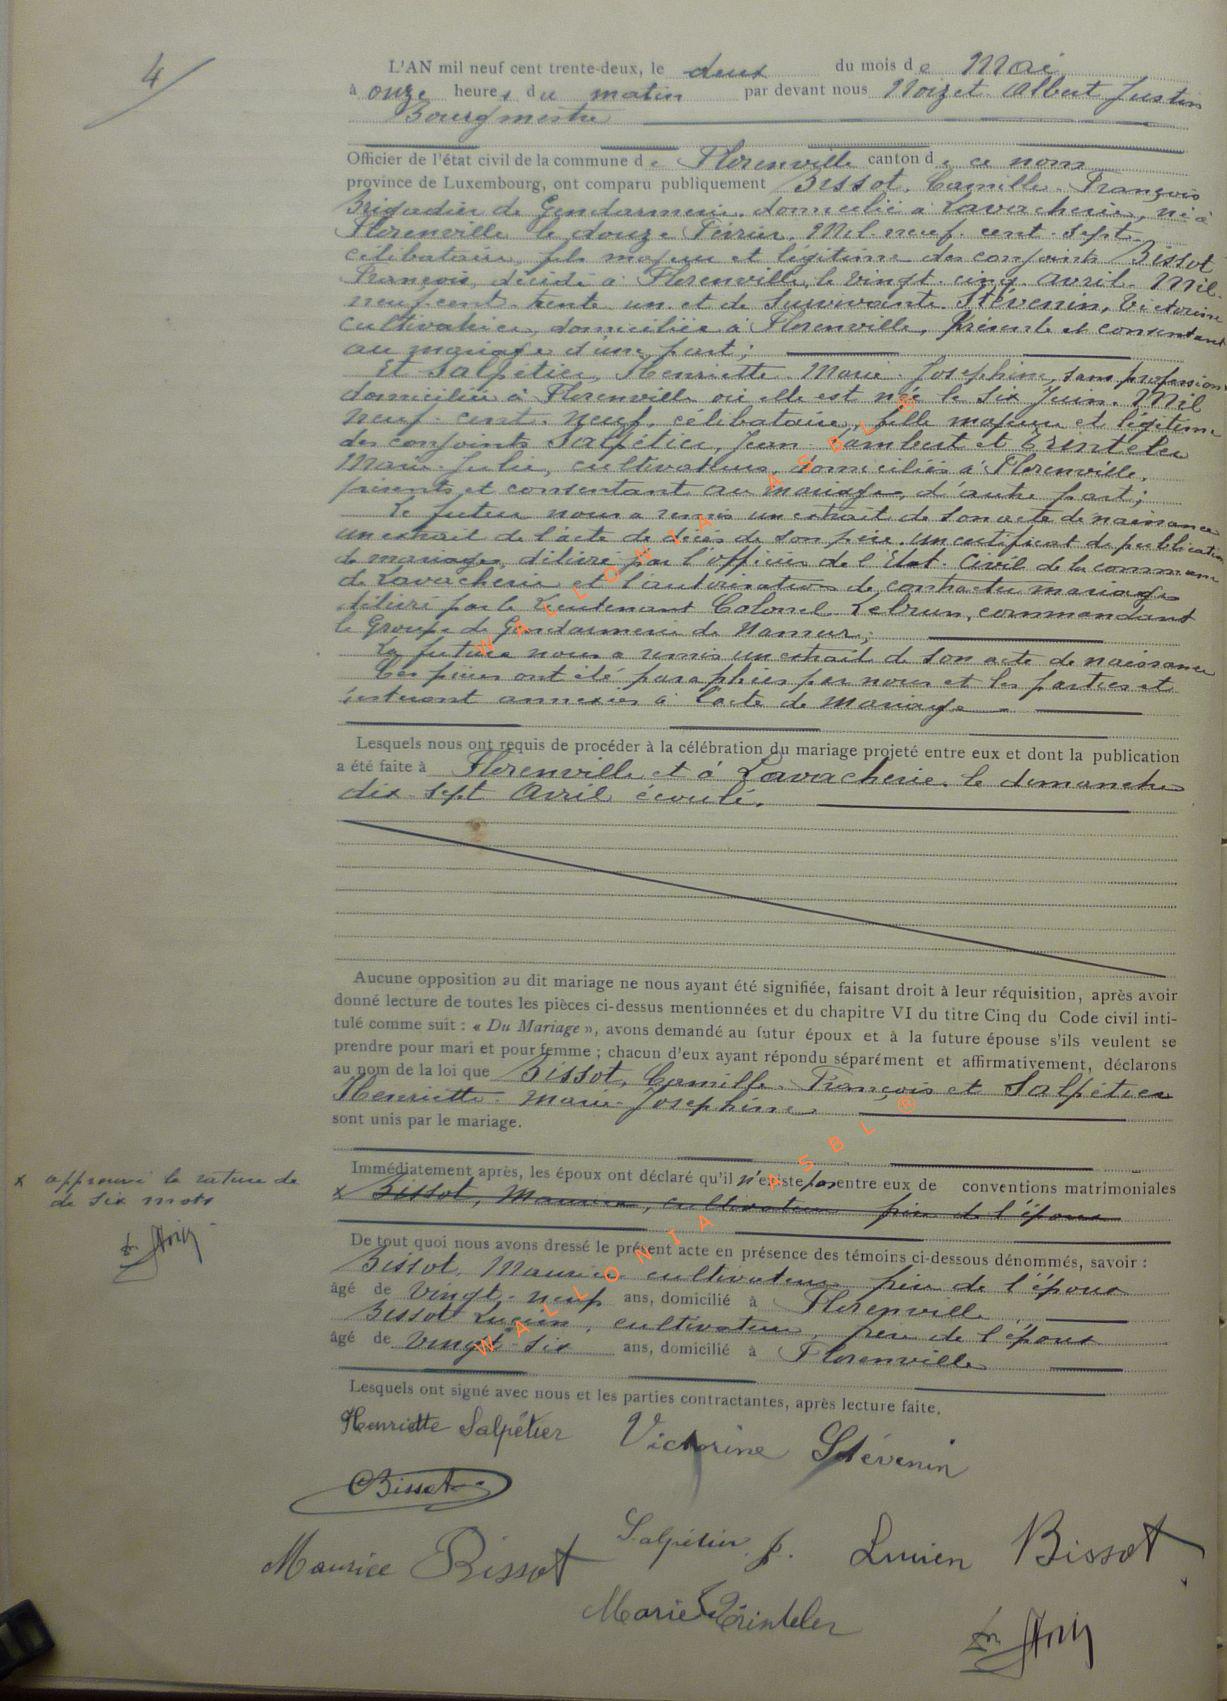 4
L'AN mil neuf cent trente-deux, le deux du mois de Mai
à onze heures du matin par devant nous Noizet Albert Justin
Bourgmestre
Officier de l'état civil de la commune de Florenville canton de ce nom
province de Luxembourg, ont comparu publiquement Bissot, Camille François
Brigadier de Gendarmerie, domicilié à Lavacherie, né à
Florenville le douze Février, Mil neuf cent sept
célibataire, fils majeur et légitime des conjoints Bissot
François, décédé à Florenville, le vingt cinq avril Mil
neuf cent trente un et de survivante Stévenin, Victorine
cultivatrice, domiciliée à Florenville, présente et consentant
au mariage d'une part;
Et Salpétier, Henriette Marie Josephine, sans profession
domiciliée à Florenville où elle est née le six Juin, Mil
neuf cent neuf, célibataire, fille majeure et légitime
des conjoints Salpétier, Jean Lambert et Trinteler
Marie Julie, cultivateurs, domiciliés à Florenville,
présents et consentant au mariage, d'autre part;
Le futur nous a remis un extrait de son acte de naissance
un extrait de l'acte de décès de son père, un certificat de publication
de mariage, délivré par l'officier de l'état civil de la commune
de Lavacherie et l'autorisation de contracter mariage
délivré par le Lieutenant Colonel Lebrun, commandant
le Groupe de Gendarmerie de Namur;
La future nous a remis un extrait de son acte de naissance
Ces pièces ont été paraphées par nous et les parties et
resteront annexées à l'acte de mariage
Lesquels nous ont requis de procéder à la célébration du mariage projeté entre eux et dont la publication
a été faite à Florenville et à Lavacherie le dimanche
dix sept Avril écoulé.
Aucune opposition au dit mariage ne nous ayant été signifiée, faisant droit à leur réquisition, après avoir
donné lecture de toutes les pièces ci-dessus mentionnées et du chapitre VI du titre Cinq du Code civil inti-
tulé comme suit : « Du Mariage », avons demandé au futur époux et à la future épouse s'ils veulent se
prendre pour mari et pour femme ; chacun d'eux ayant répondu séparément et affirmativement, déclarons
au nom de la loi que Bissot, Camille François et Salpétier
Henriette Marie Josephine
sont unis par le mariage.
Immédiatement après, les époux ont déclaré qu'il n'existe pas entre eux de conventions matrimoniales
x Bissot, Maurice, cultivateur frère de l'époux
x approuvé la rature de
de six mots
De tout quoi nous avons dressé le présent acte en présence des témoins ci-dessous dénommés, savoir :
Bissot, Maurice cultivateur frère de l'époux
âgé de vingt-neuf ans, domicilié à Florenville
Bissot Lucien, cultivateur, frère de l'époux
âgé de vingt-six ans, domicilié à Florenville
Lesquels ont signé avec nous et les parties contractantes, après lecture faite.
Henriette Salpétier Victorine Stévenin
CBissot
Maurice Bissot Salpétier J. Lucien Bissot
Marie Trinteler
WALLONIA ASBL
WALLONIA ASBL ®